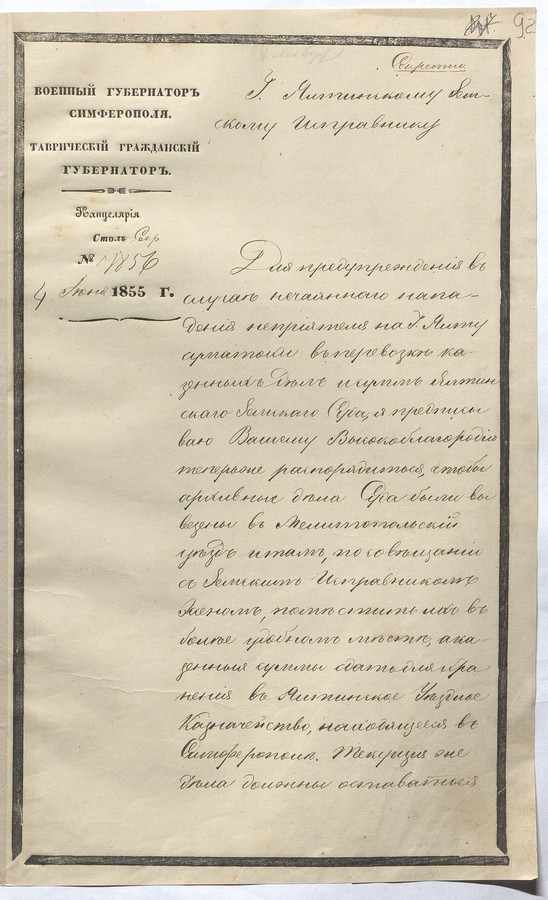 92
Секретно
ВОЕННЫЙ ГУБЕРНАТОРЪ
СИМФЕРОПОЛЯ.
ТАВРИЧЕСКІЙ ГРАЖДАНСКІЙ
ГУБЕРНАТОРЪ.
Канцелярія
Столъ Секр
№ 1856
4 Іюня 1855 Г.
Г. Ялтинскому Зем-
скому Исправнику
Для предупрежденія въ
случаѣ нечаяннаго напа-
денія непріятеля на Г. Ялту
въ перевозкѣ ка-
зенныхъ дѣлъ и суммъ Ялтин
скаго Земскаго Суда, я предписы
ваю Вашему Высокоблагородію
теперь же распорядиться, чтобы
архивныя дѣла Суда были вы
везены въ Мелитопольскій
уѣздъ и тамъ, по совѣщаніи
съ Земскимъ Исправникомъ
помѣстить ихъ въ
болѣе удобномъ мѣстѣ, а ка-
зенныя суммы сдать для хра
ненія въ Ялтинское Уѣздное
Казначейство, находящееся въ
Симферополѣ. Текущія же
дѣла должны оставаться